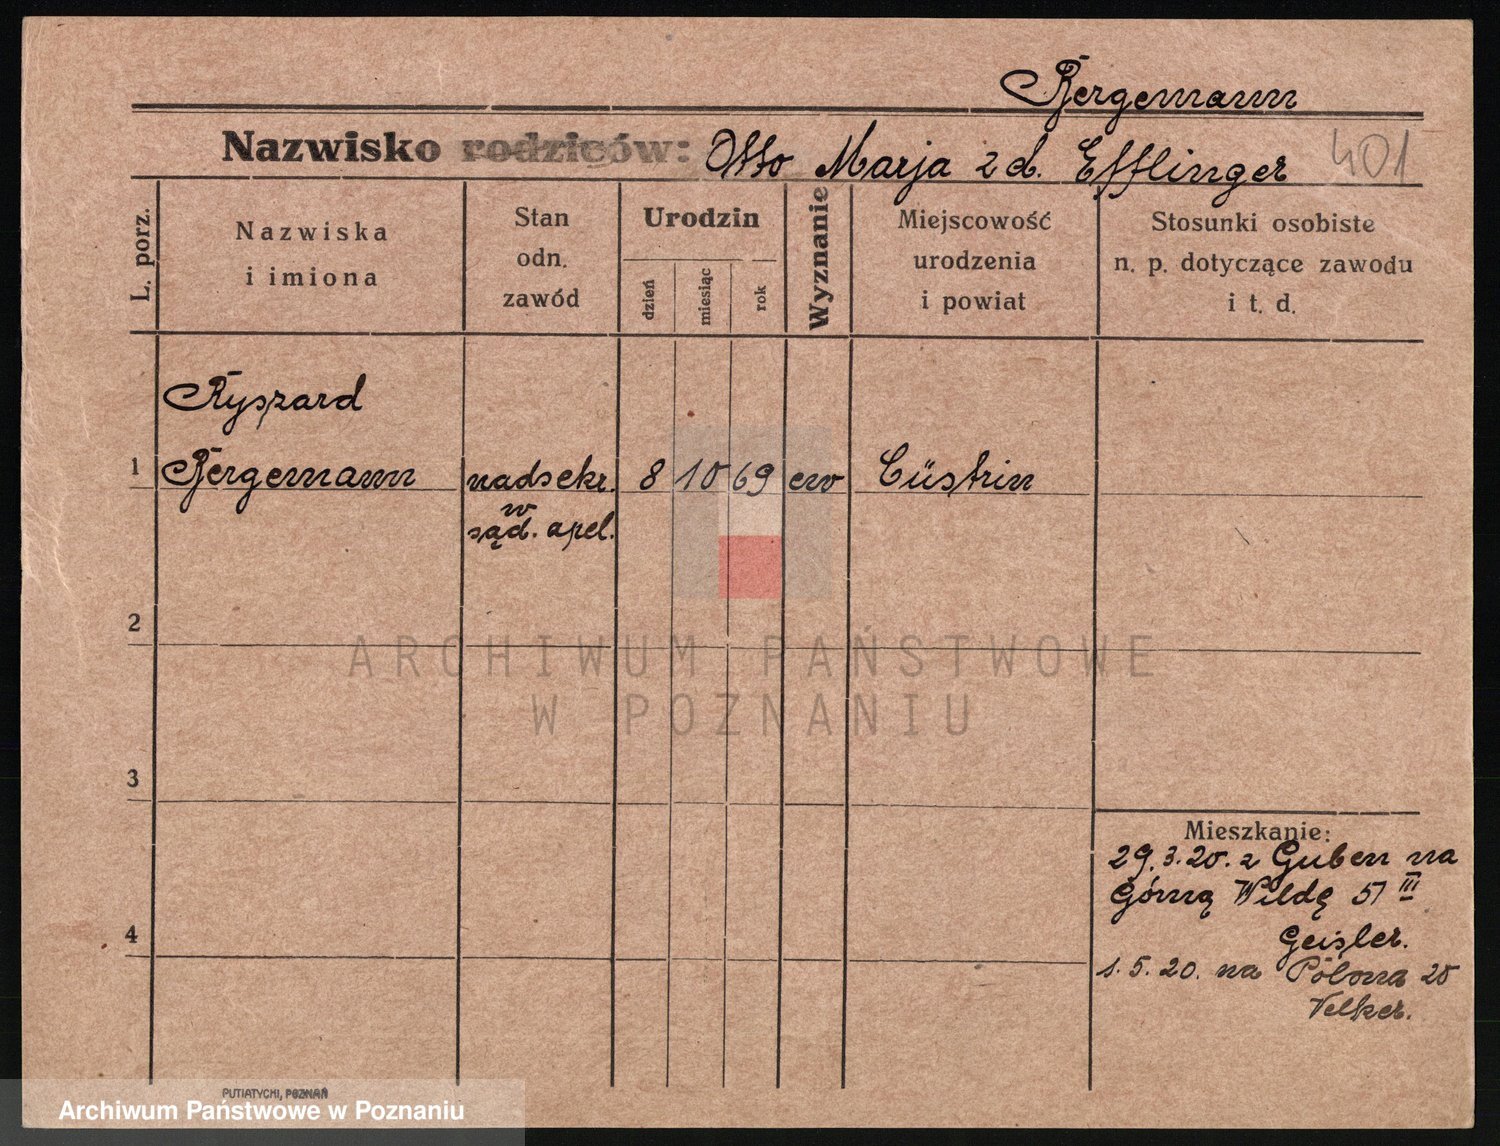 Bergemann
Nazwisko rodziców: Otto Marja z d. Efflinger 401
L. porz.
Nazwiska
i imiona
Stan
odn.
zawód
Urodzin
dzień
miesiąc
rok
Wyznanie
Miejscowość
urodzenia
i powiat
Stosunki osobiste
n. p. dotyczące zawodu
i t. d.
Ryszard
1 Bergemann nadsekr. 8 10 69 ew Cüstrin
w
sąd. apel.
2
ARCHIWUM PAŃSTWOWE
W POZNANIU
3
Mieszkanie:
29.3.20. z Guben na
Górną Wildę 51 III
4
Geisler.
1.5.20. na 20
Velker.
PUTIATYCKI, POZNAŃ
Archiwum Państwowe w Poznaniu